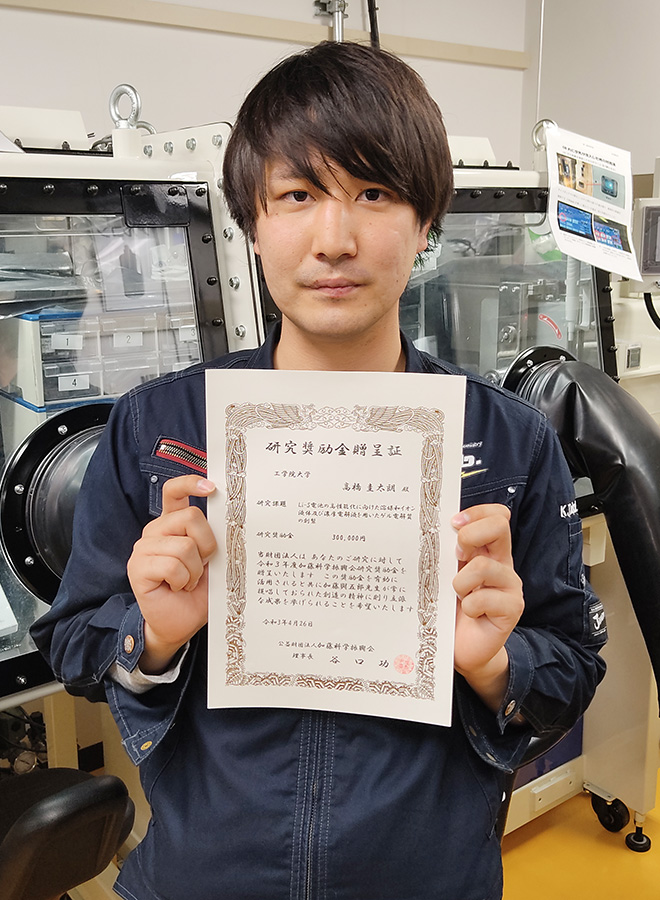 研究奨励金贈呈証
工学院大学
高橋 圭太朗 殿
研究課題 Li-S電池の高性能化に向けた溶媒和イオン
液体及び濃厚電解液を用いたゲル電解質
の創製
研究奨励金 300,000円
当財団法人は あなたのご研究に対して
令和3年度加藤科学振興会研究奨励金を
贈呈いたします この奨励金を有効に
活用されると共に加藤與五郎先生が常に
提唱しておられた創造の精神に則り立派
な成果を挙げられることを希望いたします
令和3年4月26日
公益財団法人加藤科学振興会
理事長 谷口 功
1
2
3
4